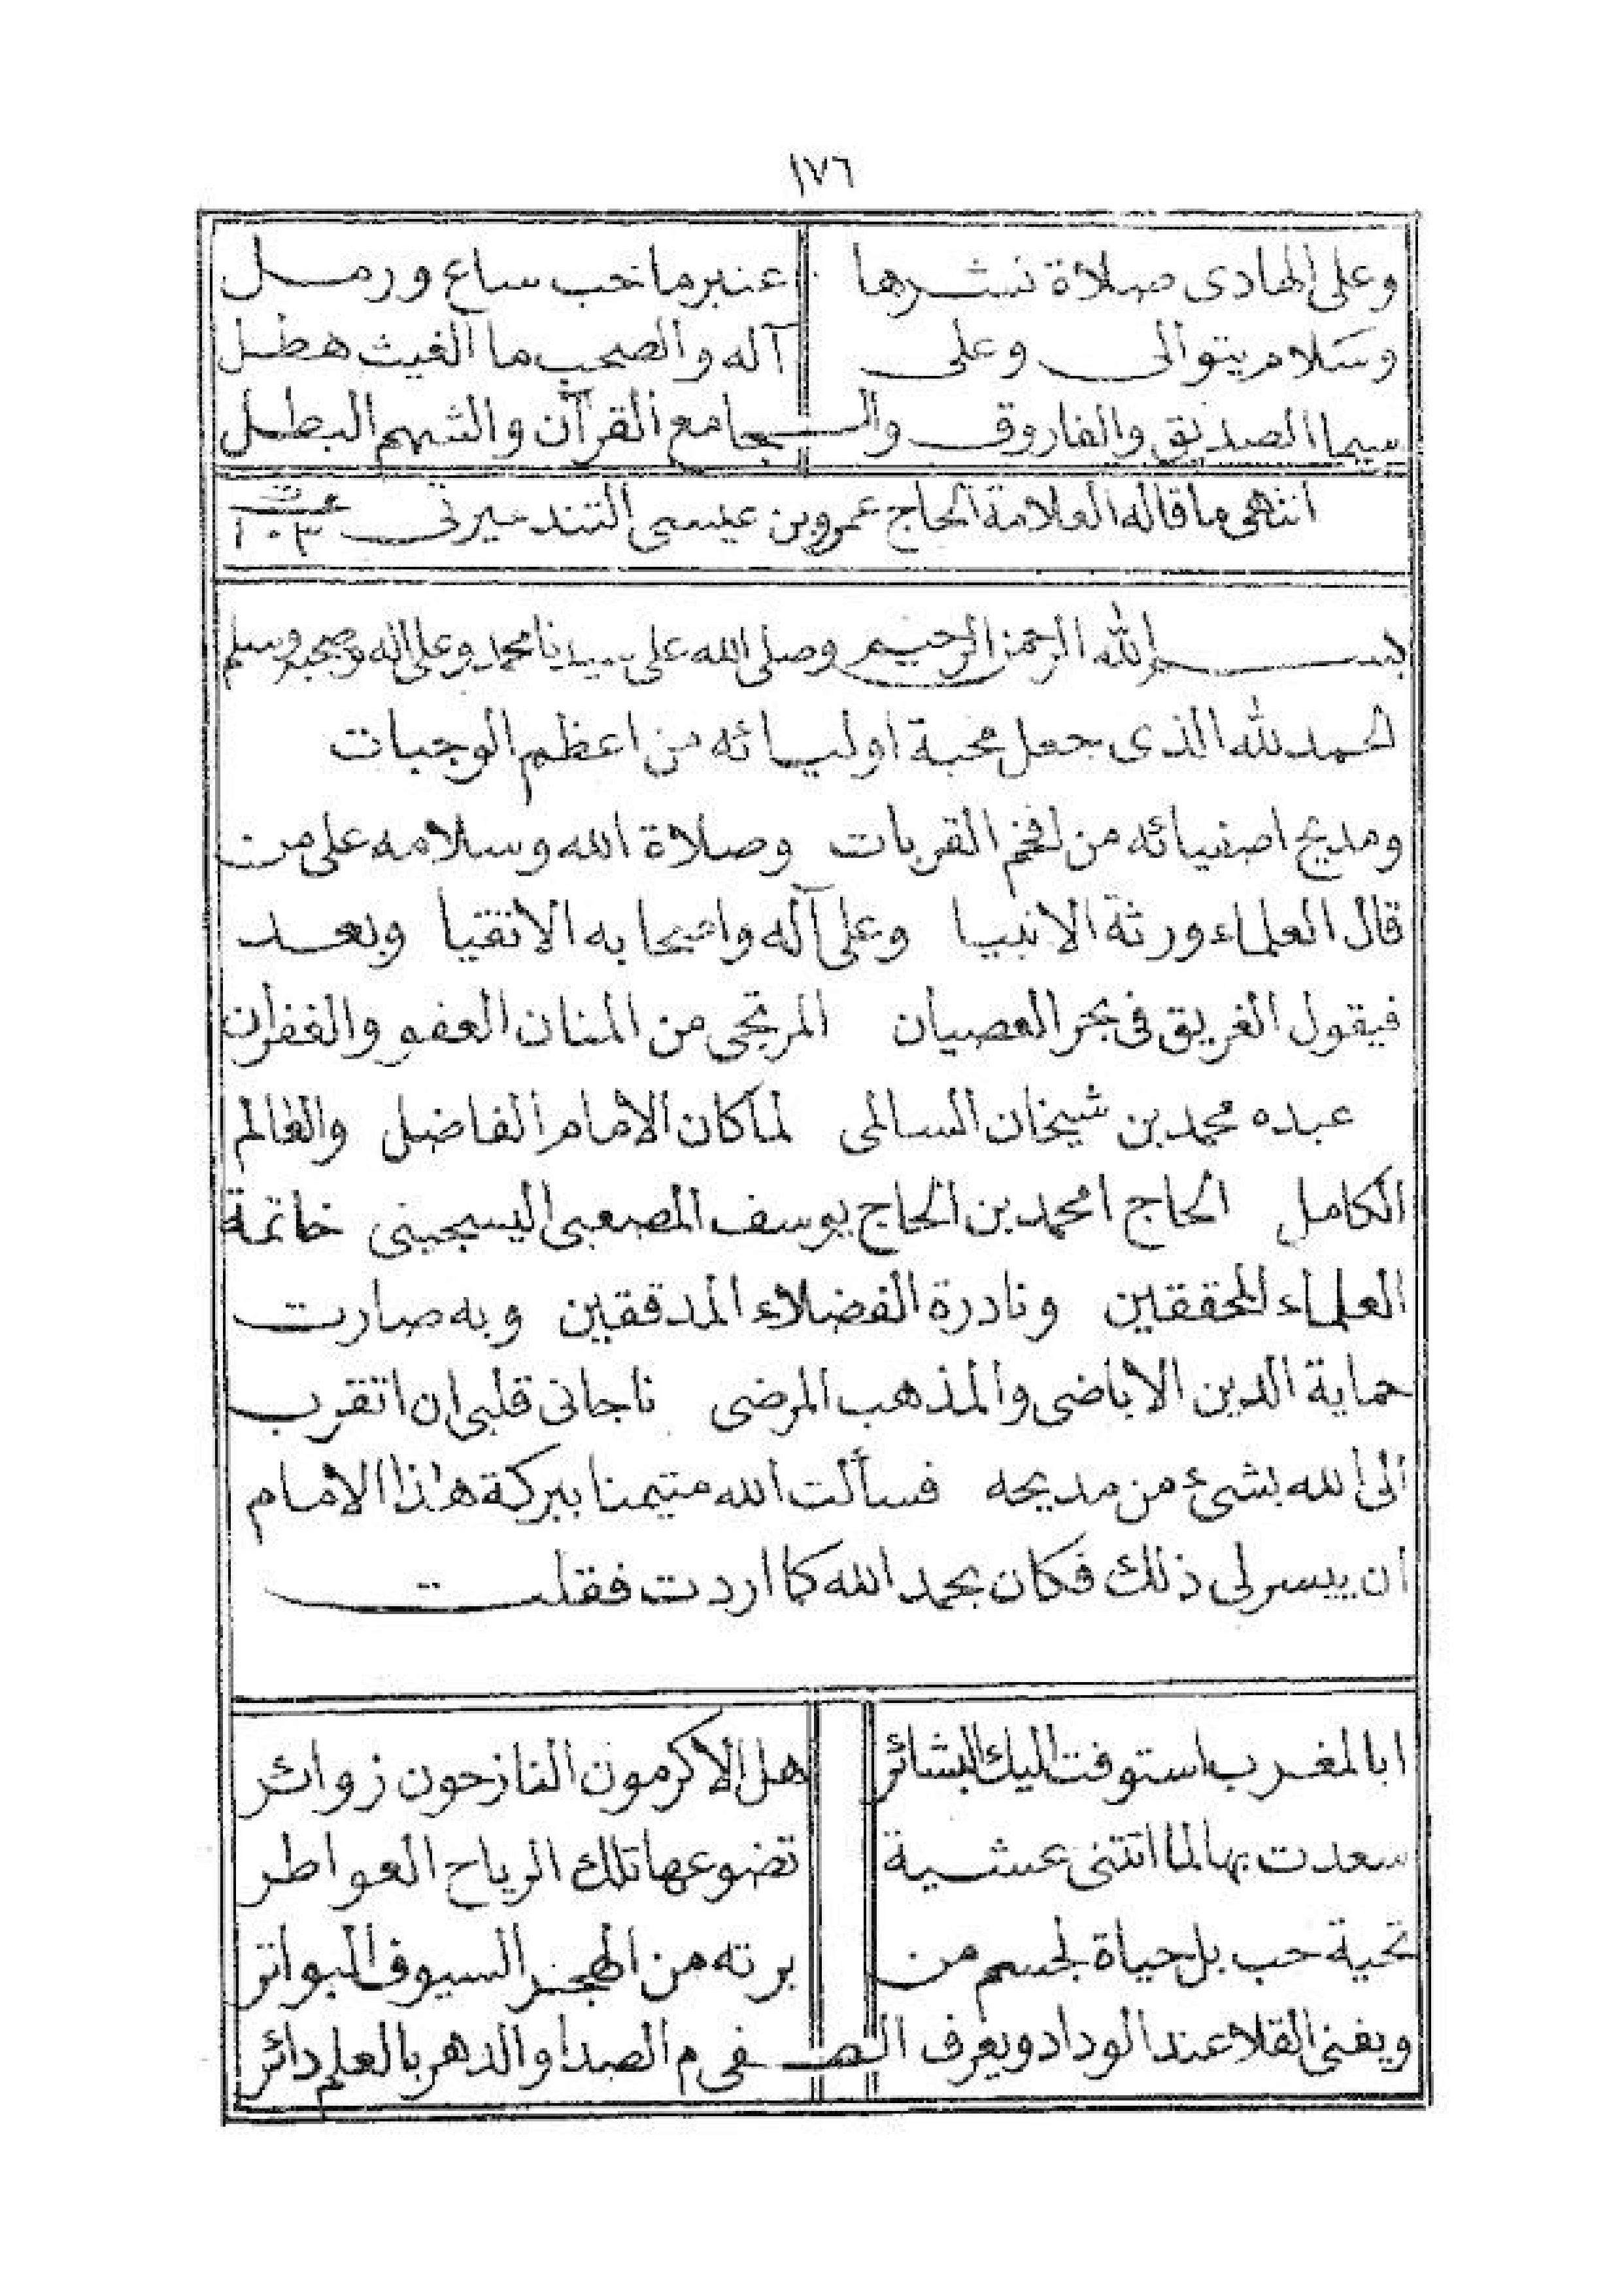 ١٧٦
وعلى الهادى صلاة نشرها عنبر ما خب ساع ورمل
وسلام يتوالى وعلى آله والصحب ما الغيث هطل
سيما الصديق والفاروق والـ ـجامع القرآن والشهم البطل
انتهى ما قاله العلامة الحاج عمرو بن عيسى التندميرتى تمت ١٠٣
بسم الله الرحمن الرحيم وصلى الله على سيدنا محمد وعلى اله وصحبه وسلم
الحمد لله الذى جعل محبة اوليائه من اعظم الوجبات
ومديح اصفيائه من افخم القربات وصلاة الله وسلامه على من
قال العلماء ورثة الانبيا وعلى آله واصحابه الاتقيا وبعد
فيقول الغريق فى بحر العصيان المرتجى من المنان العفو والغفران
عبده محمد بن شيخان السالمى لما كان الامام الفاضل والعالم
الكامل الحاج امحمد بن الحاج يوسف المصعبى اليسجينى خاتمة
العلماء المحققين ونادرة الفضلاء المدققين وبه صارت
حماية الدين الاباضى والمذهب المرضى ناجانى قلبى ان اتقرب
الى الله بشئ من مديحه فسألت الله متيمنا ببركة هذا الامام
ان ييسر لى ذلك فكان بحمد الله كما اردت فقلت
ابا المغرب استوفت اليك البشائر هل الاكرمون النازحون زوائر
سعدت بها لما اتتنى عشية تضوعها تلك الرياح العواطر
تحية حب بل حياة لجسم من برته من الهجر السيوف البواتر
ويفنى القلا عند الوداد ويعرف الصـ ـفى م الصدا والدهر بالعلم دائر